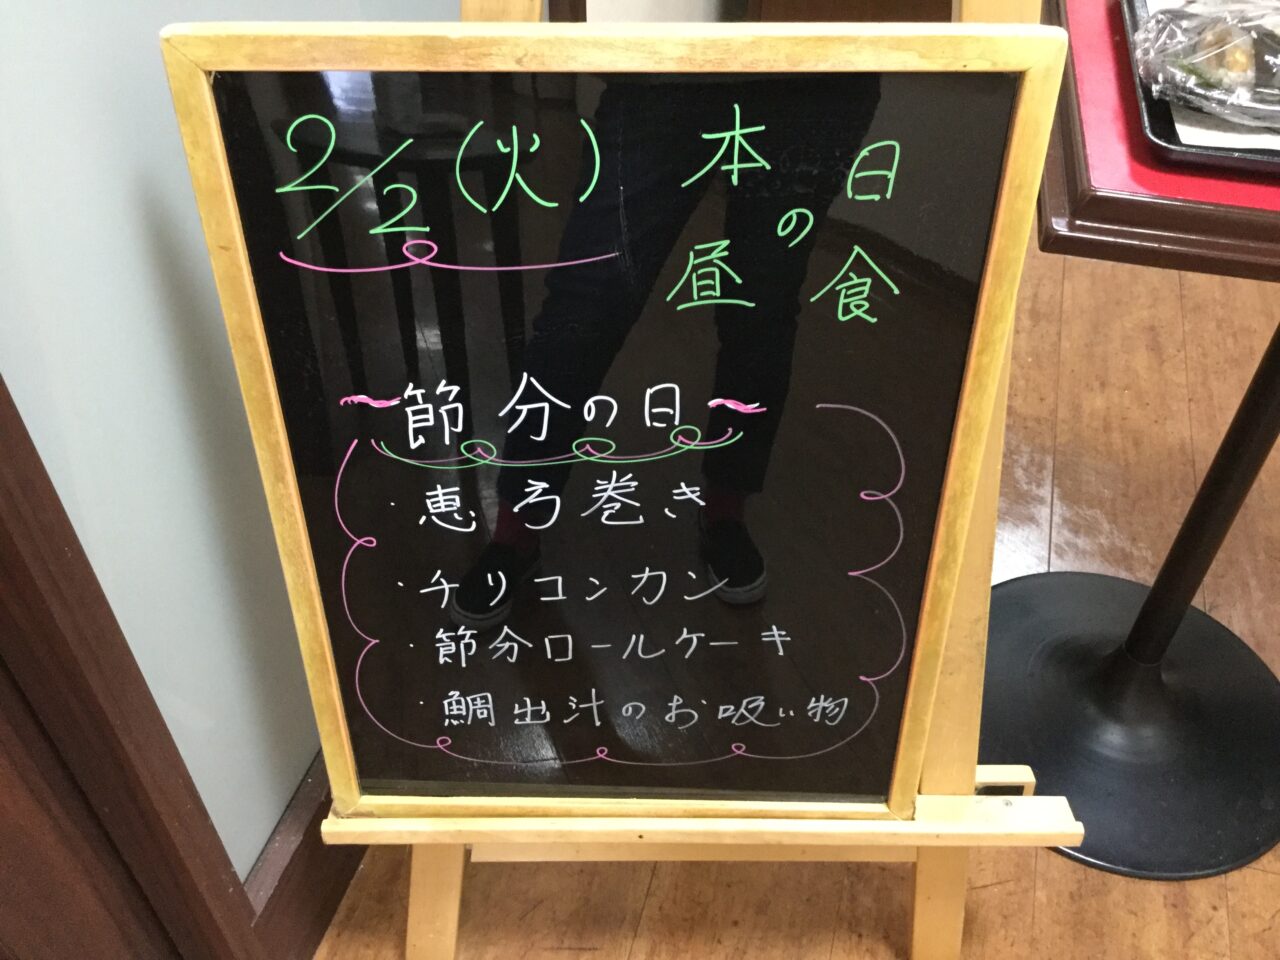 2/2(火)
本日
の
昼食
~節分の日~
・恵方巻き
・チリコンカン
・節分ロールケーキ
・鯛出汁のお吸い物